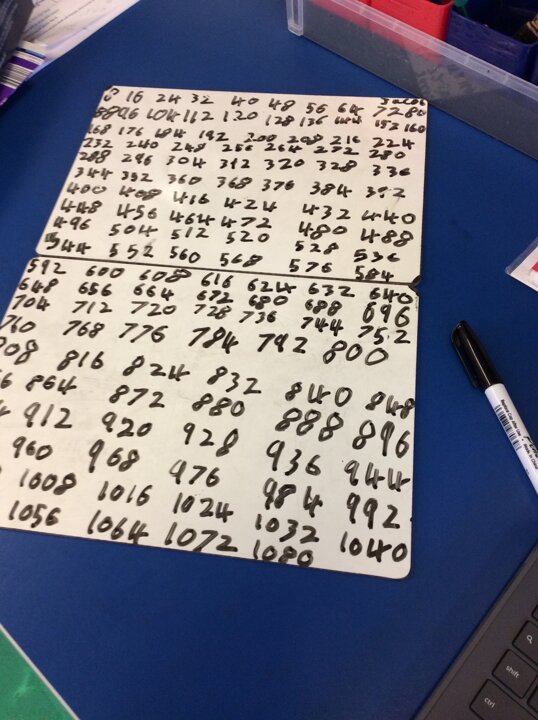 8 16 24 32 40 48 56 64 72 80
88 96 104 112 120 128 136 144 152 160
168 176 184 192 200 208 216 224
232 240 248 256 264 272 280
288 296 304 312 320 328 336
344 352 360 368 376 384 392
400 408 416 424 432 440
448 456 464 472 480 488
496 504 512 520 528 536
544 552 560 568 576 584
592 600 608 616 624 632 640
648 656 664 672 680 688 696
704 712 720 728 736 744 752
760 768 776 784 792 800
808 816 824 832 840 848
56 864 872 880 888 896
912 920 928 936 944
960 968 976 984 992
1008 1016 1024 1032 1040
1056 1064 1072 1080
shift
ctrl